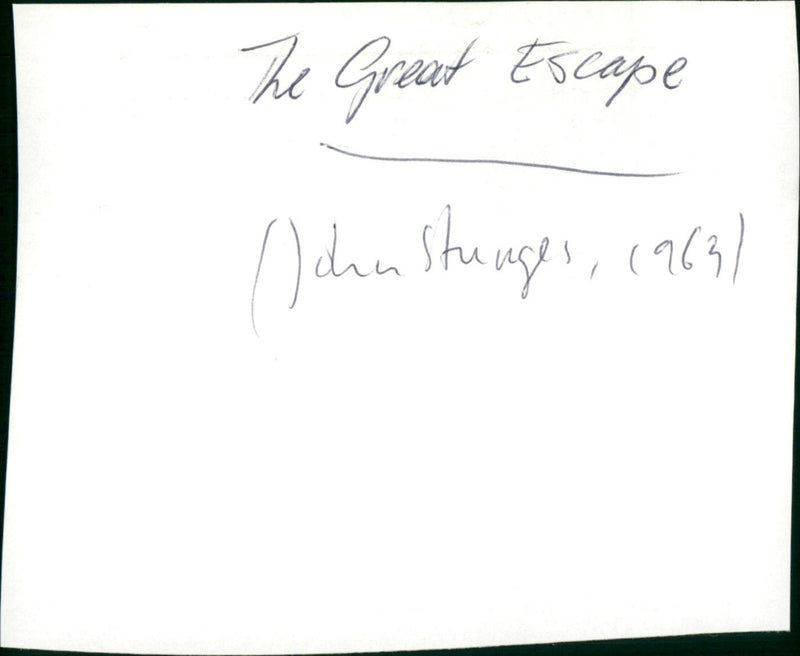 The Great Escape
(John Sturges, 1963)